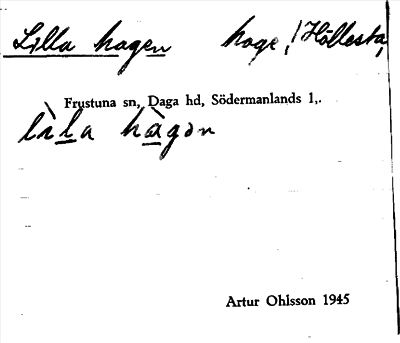 Lilla hagen hage, Hållesta,
Frustuna sn, Daga hd, Södermanlands l,.
lìla hàgən
Artur Ohlsson 1945